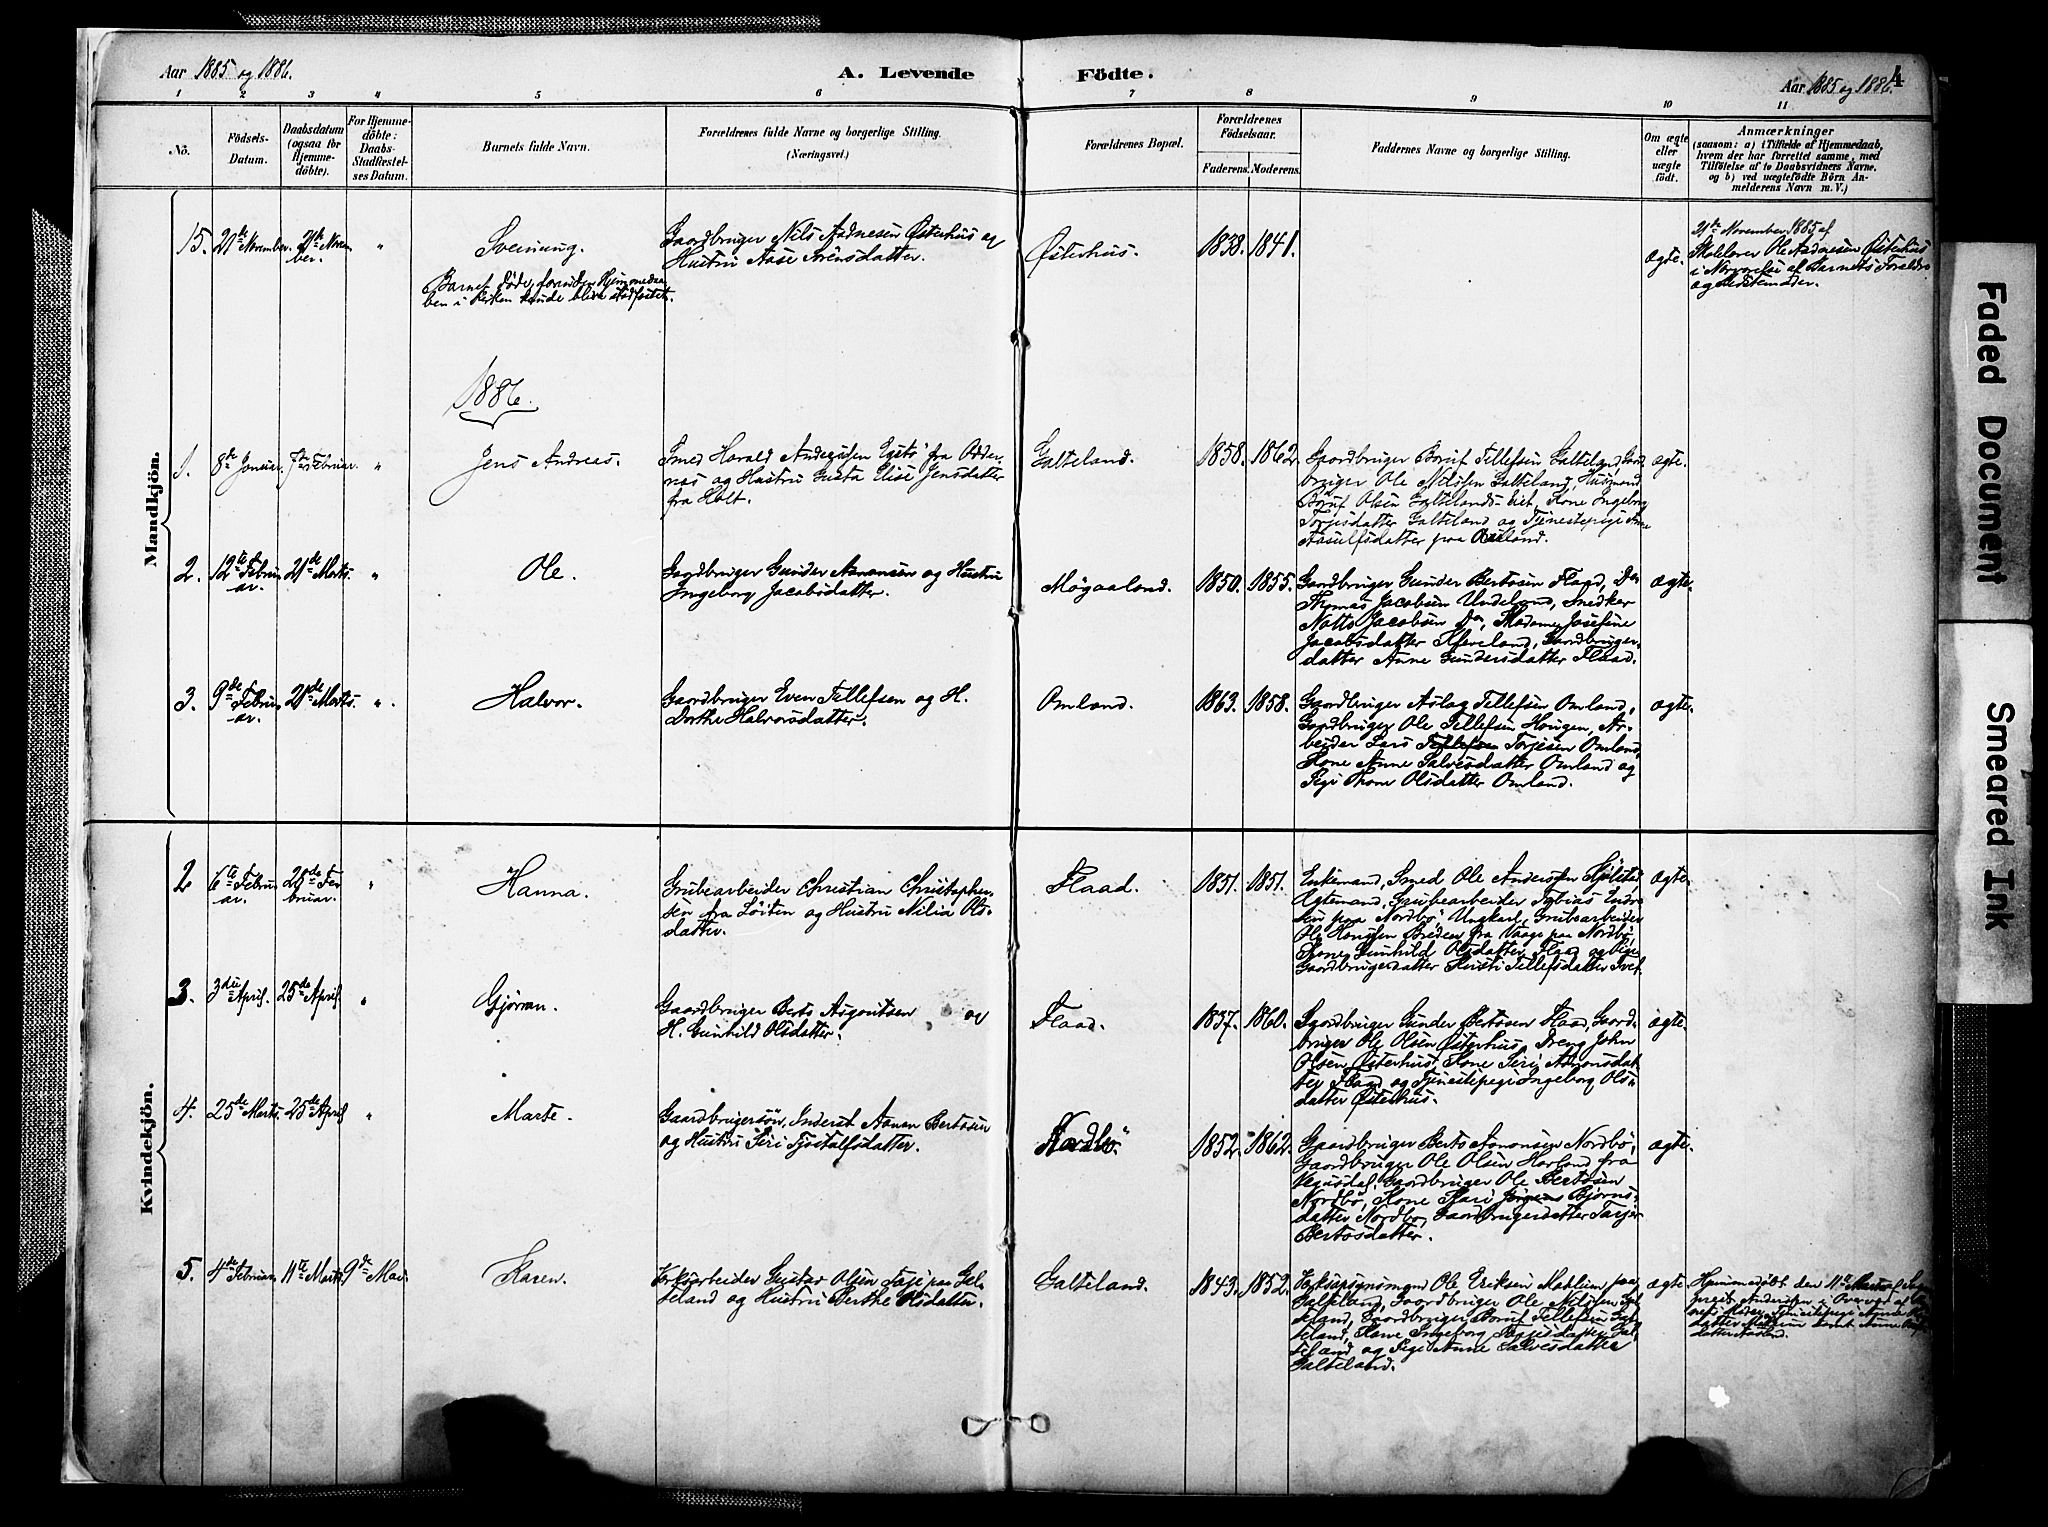 Aar 1885 og 1886.
A. Levende
Födte.
Aar 1885 og 1886.
4
1 2 3 4 5 6 7 8 9 10 11
Nō.
Födsels-Datum.
Daabsdatum (ogsaa for Hjemme-döbte).
For Hjemme-döbte: Daabs-Stadfæstel-ses Datum.
Barnets fulde Navn.
Forældrenes fulde Navne og borgerlige Stilling.
(Næringsvei.)
Forældrenes Bopæl.
Forældrenes Födselsaar.
Faderens. Moderens.
Faddernes Navne og borgerlige Stilling.
Om ægte eller uægte födt.
Anmærkninger
(saasom: a) i Tilfælde af Hjemmedaab,
hvem der har forrettet samme, med
Tilföielse af to Daabsvidners Navne.
og b) ved uægtefödte Börn An-
melderens Navn m. V.)
Mandkjön.
15. 21de November. 21de Novem
ber. "
Sveinung.
Barnet döde, forinden Hjemmedaa
ben i Kirken kunde blive stadfæstet.
Gaardbruger Nils Aadnesen Østerhus og
Hustru Aase Arensdatter.
Østerhus.
1838. 1841.
ægte.
21de November 1885 af
Skolelærer Ole Aadnesen Østerhus
i Nærværelse af Barnets Forældre
og
1886.
1. 8de Januar. 7de Februar. "
Jens Andreas.
Smed Harald Andersen Egstö fra Odder-
næs og Hustru Gusta Elise Jensdatter
fra Holt.
Galteland.
1858. 1862.
Gaardbruger Boruf Tellefsen Galteland, Gard
bruger Ole Nilsen Galteland, Husmand
Boruf Olsen Galtelands Eiet, Kone Ingeborg
Torjusdatter Galteland og Tjenestepige Anne
Aasulfsdatter paa
ægte.
2. 12te Februar. 21de Marts. "
Ole.
Gaardbruger Gunder Aanonsen og Hustru
Ingeborg Jacobsdatter.
Møgaaland.
1850. 1855.
Gaardbruger Gunder Bertosen Flaad, Do
Thomas Jacobsen Undeland, Snedker
Jacobsen Do, Madame Josefine
Jacobsdatter Kleveland, Gaardbruger-
datter Anne Gundersdatter Flaad.
ægte.
3. 9de Februar. 21de Marts. ".
Halvor.
Gaardbruger Even Tellefsen og H.
Dorthe Halvorsdatter.
Omland.
1863. 1858.
Gaardbruger Aslag Tellefsen Omland,
Gaardbruger Ole Tellefsen Hougen, Ar-
beider Lars Tellefsen Torjesen Omland,
Kone Anne Salvesdatter Omland og
Pige Thone Olsdatter Omland.
ægte.
Kvindekjön.
2 6te Februar. 29de Februar. "
Hanna.
Grubearbeider Christian Christopher-
sen fra Löiten og Hustru Nilia Ols-
datter.
Flaad.
1851. 1851.
Enkemand, Smed Ole Andersen
Ægtemand, Grubearbeider Tobias
sen paa Nordbö Ungkarl, Grubearbeider
Ole Hansen Breden fra Vaage paa Nordbö,
Kone Gunhild Olsdatter Flaad og Pige
Gaardbrugerdatter Kristi Tellefsdatter
ægte.
3. 3die April. 25de April. "
Gjöran.
Gaardbruger Berto Asgoutsen og
H. Gunhild Olsdatter.
Flaad.
1857. 1860.
Gaardbruger Gunder Bertosen Flaad, Gaard-
bruger Ole Olsen Østerhus, Dreng John
Olsen Østerhus, Kone Siri Aanonsdat
ter Flaad og Tjenestepige Ingeborg Ols-
datter Østerhus.
ægte.
4. 25de Marts. 25de April "
Marte.
Gaardbrugersön, Inderst Aanon Bertosen
og Hustru Siri datter.
Nordbö.
1852. 1862.
Gaardbruger Berto Aanonsen Nordbö,
Gaardbruger Ole Olsen Harland fra
Vegusdal, Gaardbruger Ole Bertosen
Nordbö, Kone Kari Björns-
datter Nordbö, Gaardbrugerdatter Torjer
Bertosdatter.
ægte.
5. 4de Februar. 11te Marts. 9de Mai.
Karen.
Værksarbeider Gustav Olsen Faje paa Gal-
teland og Hustru Berthe Olsdatter.
Galteland.
1843. 1852.
Ole Eriksen Mæhlum paa
Galteland, Gaardbruger Ole Nilsen Gal-
teland, Gaardbruger Boruf Tellefsen Gal-
teland, Kone Ingeborg Torjesdatter Gal-
teland og Pige Anne Salvesdatter
Galteland.
ægte.
Hjemmedöbt den 11te Marts af
Andersen i Overvær af
nets Moder, Tjenestepige
datter Mæhlum samt Anne
datter
Faded Document
Smeared Ink